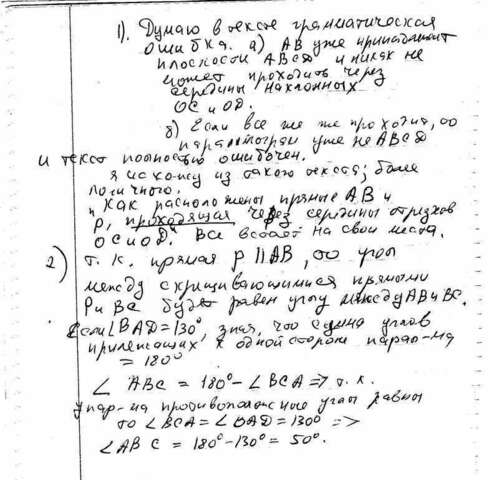 1). Думаю в тексте грамматическая
ошибка. а) AB уже принадлежит
плоскости ABCD и никак не
может проходить через
середины наклонных
OC и OD.
б) Если все же же проходит, то
параллограм уже не ABCD
и текст полностью ошибочен.
я исхожу из такого текста; более
логичного.
"Как расположены прямые AB и
p, проходящая через середины отрезков
OC и OD." Все встает на свои места.
2) т. к. прямая p || AB, то угол
между скрещивающимися прямыми
P и BC будет равен углу между AB и BC.
Если ∠BAD = 130°, зная, что сумма углов
прилежащих к одной стороне парал-ма
= 180°
∠ ABC = 180° - ∠ BCA => т. к.
у пар-ма противоположные углы равны
то ∠BCA = ∠BAD = 130° =>
∠AB C = 180° - 130° = 50°.